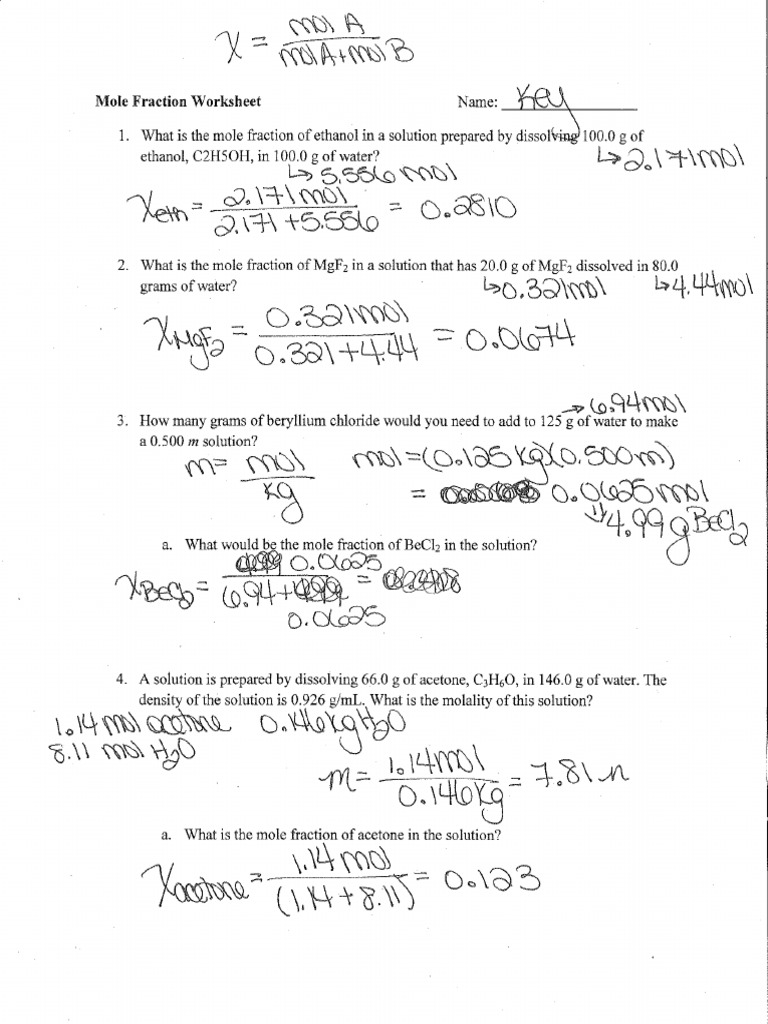 X = mol A / mol A + mol B
Mole Fraction Worksheet Name: Key
1. What is the mole fraction of ethanol in a solution prepared by dissolving 100.0 g of
ethanol, C2H5OH, in 100.0 g of water? ↳ 2.171 mol
↳ 5.556 mol
Xeth = 2.171 mol / 2.171 + 5.556 = 0.2810
2. What is the mole fraction of MgF₂ in a solution that has 20.0 g of MgF₂ dissolved in 80.0
grams of water? ↳ 0.321 mol ↳ 4.44 mol
XMgF₂ = 0.321 mol / 0.321 + 4.44 = 0.0674
→ 6.94 mol
3. How many grams of beryllium chloride would you need to add to 125 g of water to make
a 0.500 m solution?
m = mol / kg mol = (0.125 kg)(0.500 m)
= 0.0625 mol
↳ 4.99 g BeCl₂
a. What would be the mole fraction of BeCl₂ in the solution?
XBeCl₂ = 0.0625 / 6.94 + 0.0625 =
4. A solution is prepared by dissolving 66.0 g of acetone, C₃H₆O, in 146.0 g of water. The
density of the solution is 0.926 g/mL. What is the molality of this solution?
1.14 mol acetone 0.146 kg H₂O
8.11 mol H₂O
m = 1.14 mol / 0.146 kg = 7.81 m
a. What is the mole fraction of acetone in the solution?
Xacetone = 1.14 mol / (1.14 + 8.11) = 0.123